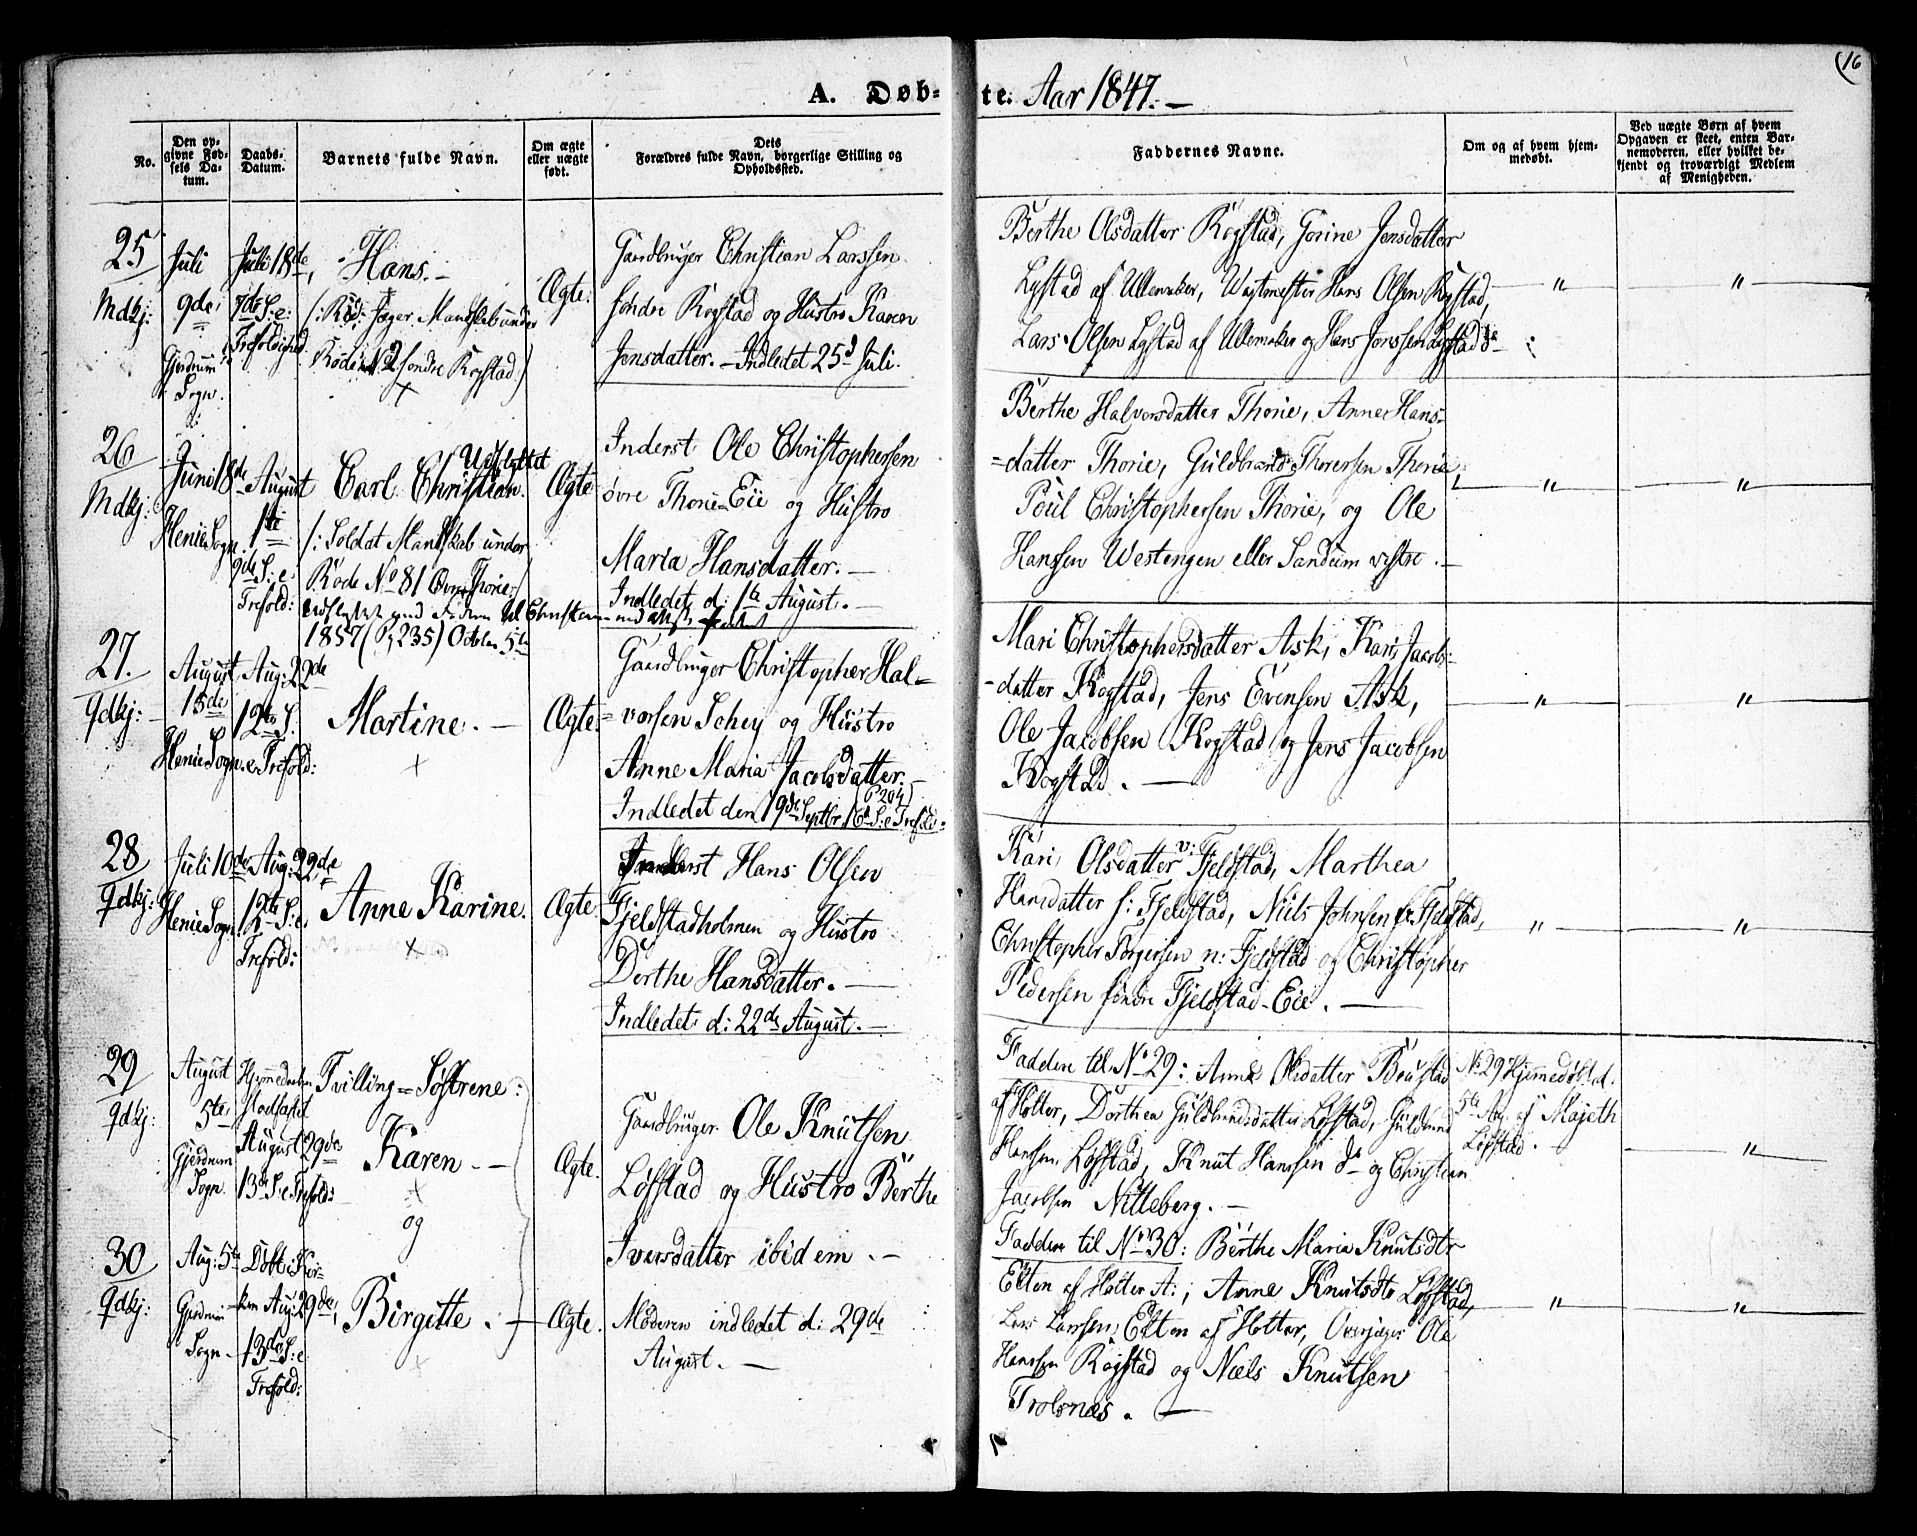 (16
A. Døb-te. Aar 1847. —
No.
Den op-
givne Fød-
sels Da-
tum.
Daabs-
Datum.
Barnets fulde Navn.
Om ægte
eller uægte
født.
Dets
Forældres fulde Navn, borgerlige Stilling og
Opholdssted.
Faddernes Navne.
Om og af hvem hjem-
medøbt.
Ved uægte Børn af hvem
Opgaven er skeet, enten Bar-
nemoderen, eller hvilket be-
kjendt og troværdigt Medlem
af Menigheden.
25
Mdkj:
Juli
9de
Gjerdrum
Sogn.
Juli 18de,
7de S: e:
Trefoldighed.
Hans. —
/: Rød: Jæger Mandskab under
Rode No 2 søndre Kogstad.)
+
Ægte:
Gaardbruger Christian Larssen
søndre Kogstad og Hustro Karen
Jensdatter. — Indledet 25d Juli.
Berthe Olsdatter Kogstad, Gorine Jensdatter
Lystad af Ullensaker, Vagtmester Hans Olsen Kogstad,
Lars Olsen Lystad af Ullensaker og Hans Jonssen Lystad
"
"
26
Mdkj:
Juni 18de
Henie Sogn.
August
1ste
9de S: e.
Trefold:
Udflyttet
Carl Christian.
/: Soldat Mandskab under
Rode No 81 øvre Thorie:/
Udflyttet med Fader til Christian
1857 (P, 235) October 5te
Ægte
Inderst Ole Christophersen
øvre Thorie-Eie og Hustro
Maria Hansdatter. —
Indledet d: 1te August. —
Berthe Halvorsdatter Thorie, Anne Hans-
=datter Thorie, Guldbrand Thorersen Thorie,
Poul Christophersen Thorie, og Ole
Hanssen Westengen eller Sandum vestre. —
"
"
27.
Qdkj:
August
15de
Henie Sogn.
Aug: 22de
12te S.
e. Trefold:
Martine. —
+
Ægte
Gaardbruger Christopher Hal=
=vorsen Schey og Hustro
Anne Maria Jacobsdatter. —
(P 204)
Indledet den 19de Septbr, 16d S: e Trefold:
Mari Christophersdatter Ask, Kari Jacobs-
-datter Kogstad, Jens Evensen Ask,
Ole Jacobsen Kogstad og Jens Jacobsen
Kogstad. —
"
"
28
Qdkj:
Juli 10de
Henie Sogn.
Aug: 22de
12te S: e.
Trefold:
Anne Karine.
+
Ægte.
Inderst Hans Olsen
Fjeldstadholmen og Hustro
Dorthe Hansdatter. —
Indledet d: 22de August. —
Kari Olsdatter v: Fjeldstad, Marthea
Hansdatter s: Fjeldstad, Niels Johnsen Fjeldstad,
Christopher Torgersen n: Fjeldstad og Christopher
Pedersen søndre Fjeldstad-Eie. —
"
"
29
Qdkj:
August
5te
Gjerdrum
Sogn.
Hjemmedøbten
stadfæstet
August 29de
13de S: e Trefold:
Tvilling=Søstrene:
Karen. —
+
og
Ægte.
Gaardbruger Ole Knutsen
Løfstad og Hustro Berthe
Iversdatter ibidem. —
Faddere til No 29: Anne Olsdatter Boustad
af Holter, Dorthea Guldbrandsdatter Løfstad, Guldbrand
Hanssen Løfstad, Knut Hanssen do og Christian
Jacobsen Nitteberg. —
No 29 Hjemmedøbt d.
5te Aug. af Majeth
Løfstad.
"
30
Qdkj:
Aug: 5te
Gjerdrum
Sogn.
Døbt i Kir-
ken Aug: 29de,
13de S: e
Trefold:
Birgitte. —
+
Ægte.
Moderen indledet d: 29de
August. —
Faddere til No 30: Berthe Maria Knutsdtr
Elton af Holter A:, Anne Knutsdtr Løfstad,
Lars Larssen Elton af Holter, Overjæger Ole
Hanssen Kogstad og Niels Knutsen
Trolsnæs. —
"
"